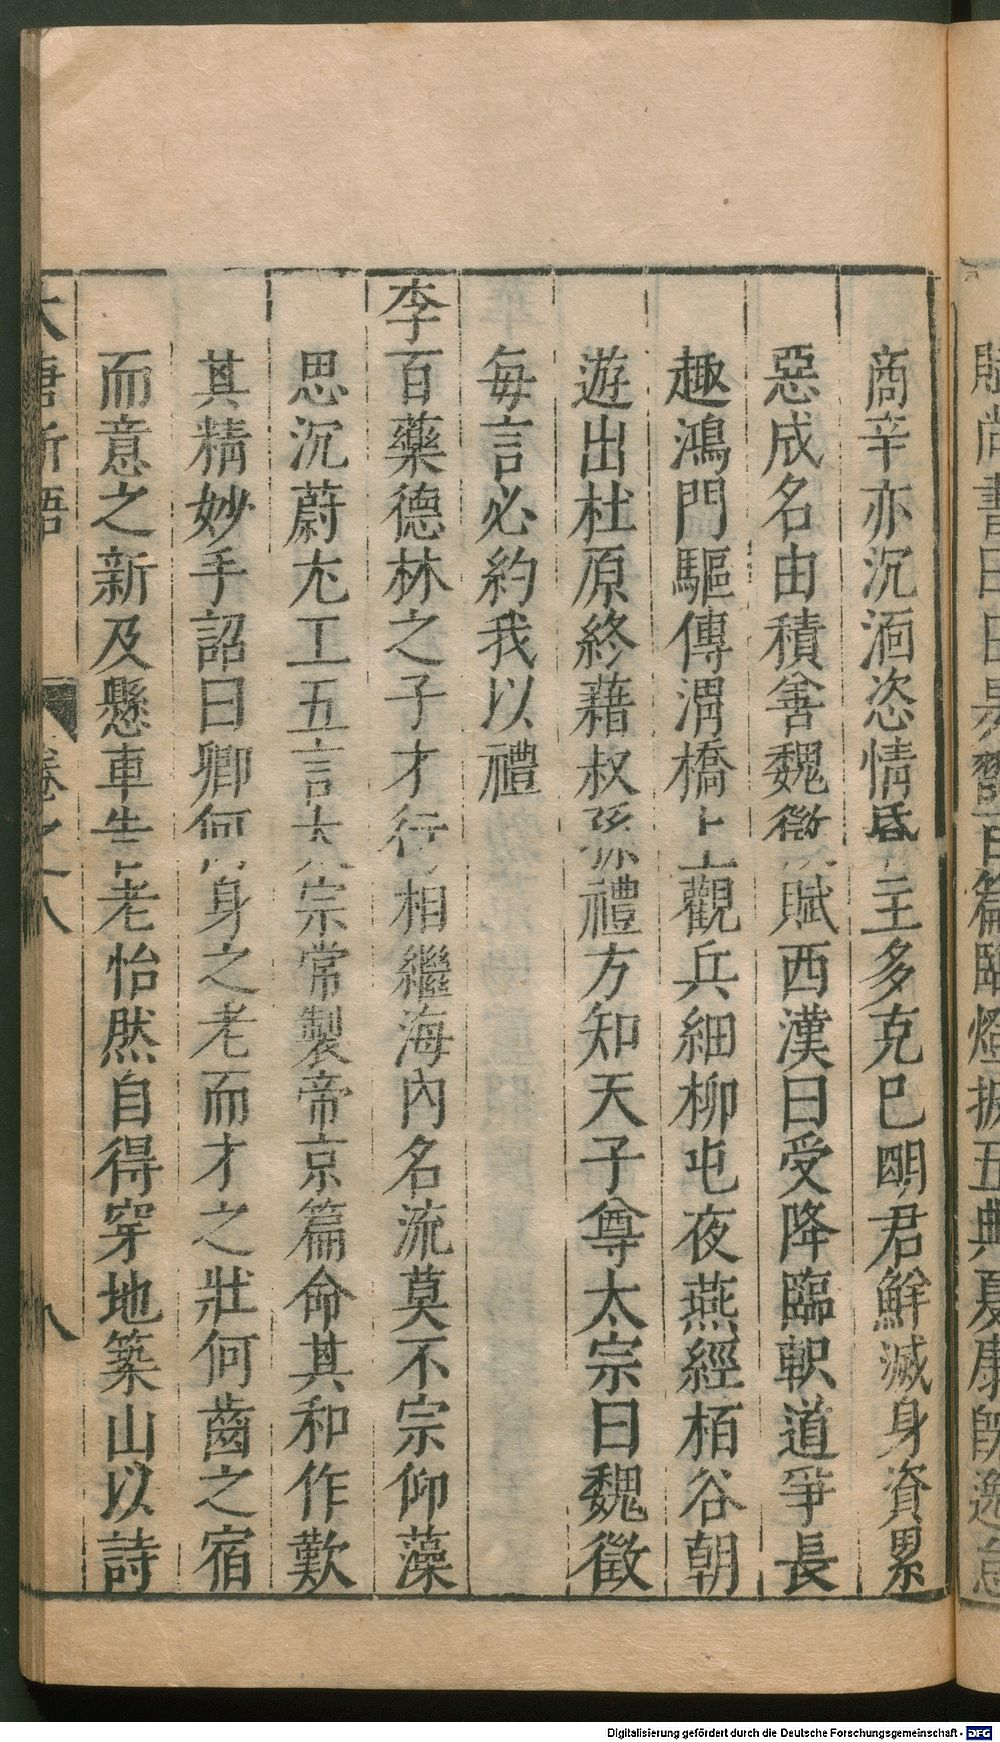 商辛亦沉湎恣情昏主多克己明君鮮滅身資累
惡成名由積善魏徵賦西漢曰受降臨軹道爭長
趣鴻門驅傳渭橋上觀兵細柳屯夜燕經栢谷朝
遊出杜原終藉叔孫禮方知天子尊太宗曰魏徵
每言必約我以禮
李百藥德林之子才行相繼海內名流莫不宗仰藻
思沉蔚尤工五言太宗常製帝京篇命其和作歎
其精妙手詔曰卿何身之老而才之壯何齒之宿
而意之新及懸車告老怡然自得穿地築山以詩
大唐新語 卷之八 八
Digitalisierung gefördert durch die Deutsche Forschungsgemeinschaft - DFG